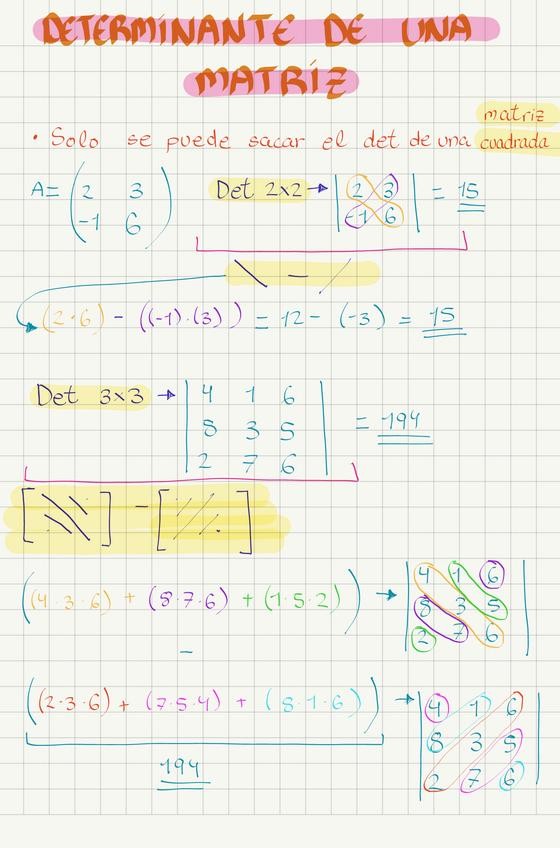 DETERMINANTE DE UNA
MATRÍZ
• Solo se puede sacar el det de una matriz cuadrada
A = ( 2 3
-1 6 )
Det 2x2 → | 2 3
-1 6 | = 15
\ - /
(2·6) - ((-1)·(3)) = 12 - (-3) = 15
Det 3x3 → | 4 1 6
8 3 5
2 7 6 | = 194
[ \\\ ] - [ /// ]
((4·3·6) + (8·7·6) + (1·5·2)) → | 4 1 6
8 3 5
2 7 6 |
-
((2·3·6) + (7·5·4) + (8·1·6)) → | 4 1 6
8 3 5
2 7 6 |
194